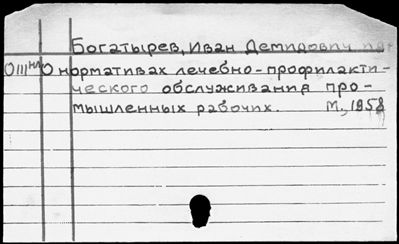 Богатырев, Иван Демидович
О нормативах лечебно-профилакти-
ческого обслуживания про-
мышленных рабочих. М., 1958